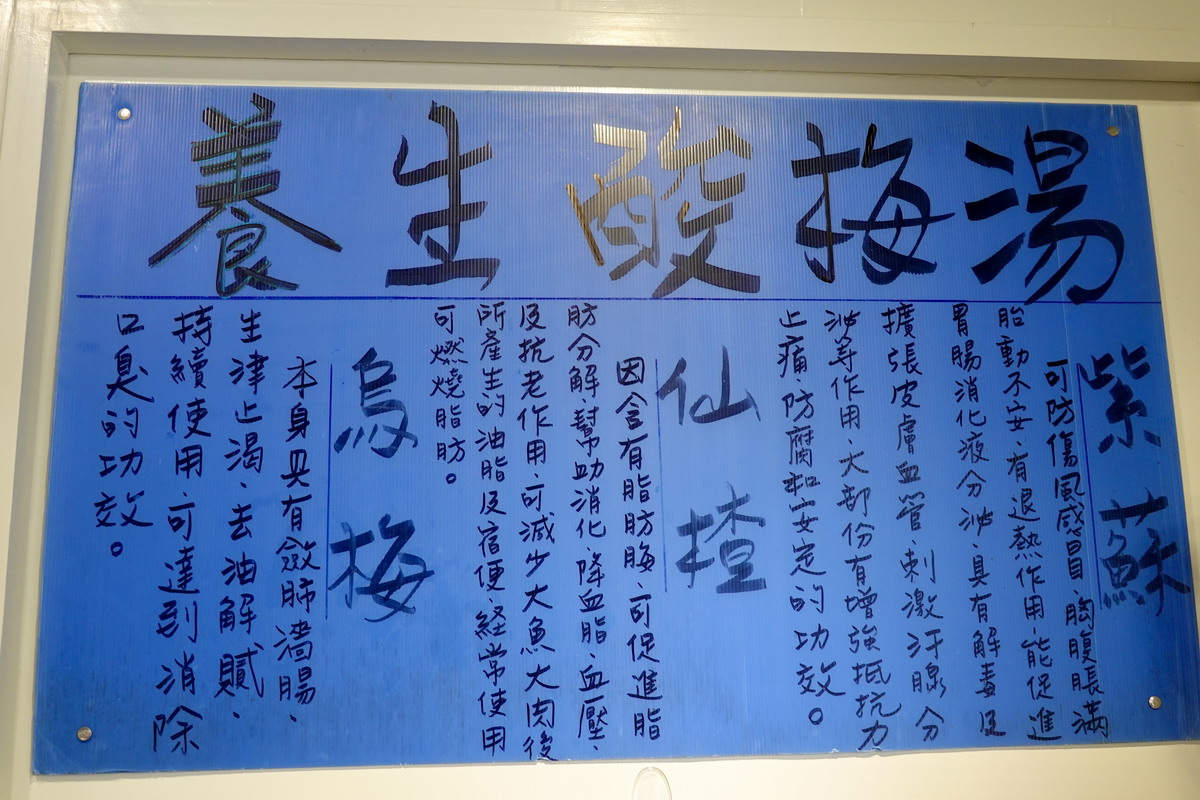 養生酸梅湯
紫蘇
可防傷風感冒、胸腹脹滿
胎動不安、有退熱作用、能促進
胃腸消化液分泌、具有解毒及
擴張皮膚血管、刺激汗腺分
泌等作用、大部份有增強抵抗力
止痛、防腐和安定的功效。
仙楂
因含有脂肪脢、可促進脂
肪分解、幫助消化、降血脂、血壓、
及抗老作用、可減少大魚大肉後
所產生的油脂及宿便、経常使用
可燃燒脂肪。
烏梅
本身具有斂肺濇腸、
生津止渴、去油解膩、
持續使用、可達到消除
口臭的功效。